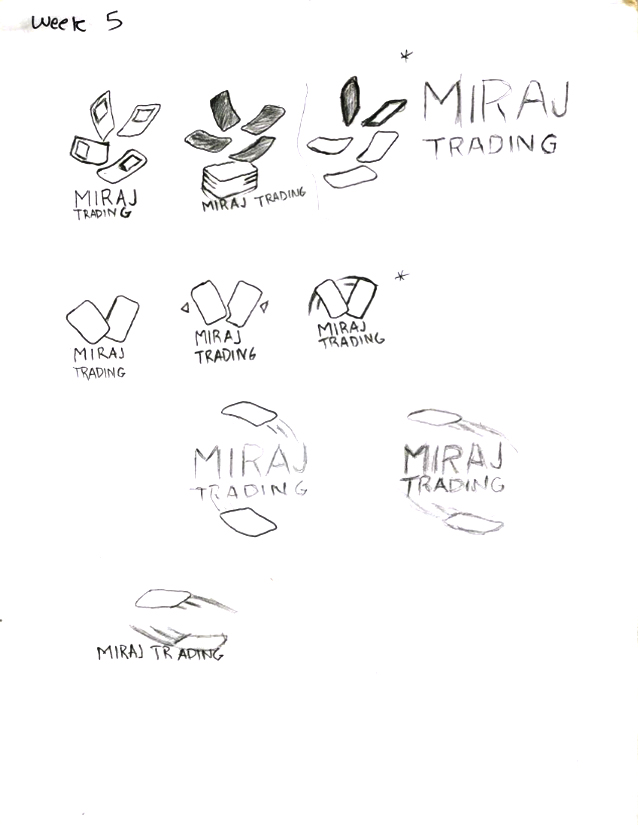 Week 5
*
MIRAJ
TRADING
MIRAJ TRADING
MIRAJ
TRADING
*
MIRAJ
TRADING
MIRAJ
TRADING
MIRAJ
TRADING
MIRAJ
TRADING
MIRAJ
TRADING
MIRAJ TRADING